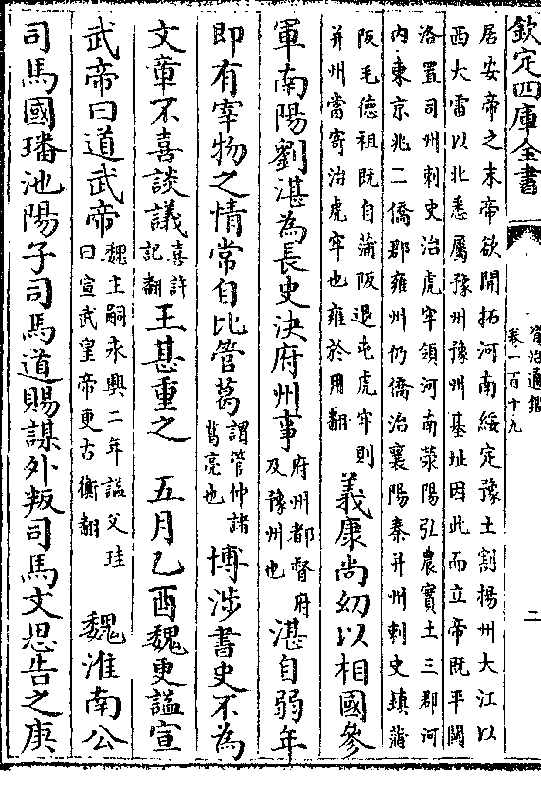 欽定四庫全書
資治通鑑
卷一百十九
二
居安帝之末帝欲開拓河南綏定豫土割揚州大江以
西大雷以北悉屬豫州豫州基址因此而立帝既平關
洛置司州刺史治虎牢領河南滎陽弘農實土三郡河
内東京兆二僑郡雍州仍僑治襄陽秦并州刺史鎮蒲
阪毛德祖既自蒲阪退屯虎牢則
并州當寄治虎牢也雍於用翻
義康尚幼以相國參
軍南陽劉湛為長史決府州事
府州都督府
及豫州也
湛自弱年
即有宰物之情常自比管葛
謂管仲諸
葛亮也
博涉書史不為
文章不喜談議
喜許
記翻
王甚重之 五月乙酉魏更諡宣
武帝曰道武帝
魏主嗣永興二年諡父珪
曰宣武皇帝更古衡翻
魏淮南公
司馬國璠池陽子司馬道賜謀外叛司馬文思告之庚